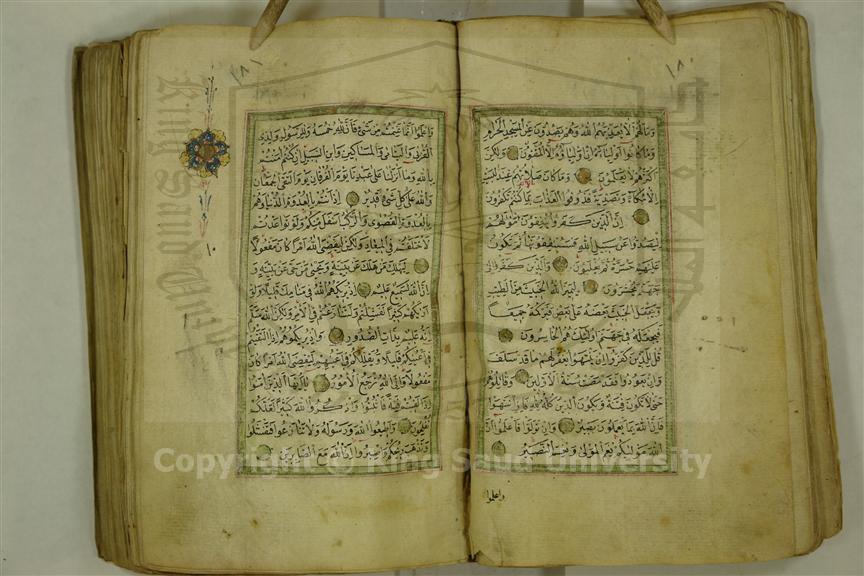 ١٨٠
وما لهم الا يعذبهم الله وهم يصدون عن المسجد الحرام
وما كانوا اولياءه ان اولياؤه الا المتقون ولكن
اكثرهم لا يعلمون وما كان صلاتهم عند البيت
الا مكاء وتصدية فذوقوا العذاب بما كنتم تكفرون
ان الذين كفروا ينفقون اموالهم
ليصدوا عن سبيل الله فسينفقونها ثم تكون
عليهم حسرة ثم يغلبون والذين كفروا الى
جهنم يحشرون ليميز الله الخبيث من الطيب
ويجعل الخبيث بعضه على بعض فيركمه جميعا
فيجعله في جهنم اولئك هم الخاسرون
قل للذين كفروا ان ينتهوا يغفر لهم ما قد سلف
وان يعودوا فقد مضت سنة الاولين وقاتلوهم
حتى لا تكون فتنة ويكون الدين كله لله فان انتهوا
فان الله بما يعملون بصير وان تولوا فاعلموا ان
الله موليكم نعم المولى ونعم النصير
واعلموا
١٨١
واعلموا انما غنمتم من شئ فان لله خمسه وللرسول ولذي
القربى واليتامى والمساكين وابن السبيل ان كنتم امنتم
بالله وما انزلنا على عبدنا يوم الفرقان يوم التقى الجمعان
والله على كل شئ قدير اذ انتم بالعدوة الدنيا وهم
بالعدوة القصوى والركب اسفل منكم ولو تواعدتم
لاختلفتم في الميعاد ولكن ليقضي الله امرا كان مفعولا
ليهلك من هلك عن بينة ويحيى من حي عن بينة و
ان الله لسميع عليم اذ يريكهم الله في منامك قليلا ولو
اريكهم كثيرا لفشلتم ولتنازعتم في الامر ولكن الله سلم
انه عليم بذات الصدور واذ يريكموهم اذ التقيتم
في اعينكم قليلا ويقللكم في اعينهم ليقضي الله امرا كان
مفعولا والى الله ترجع الامور يا ايها الذين امنوا
اذا لقيتم فئة فاثبتوا واذكروا الله كثيرا لعلكم
تفلحون واطيعوا الله ورسوله ولا تنازعوا فتفشلوا
وتذهب ريحكم واصبروا ان الله مع الصابرين
Copyright © King Saud University
King Saud University